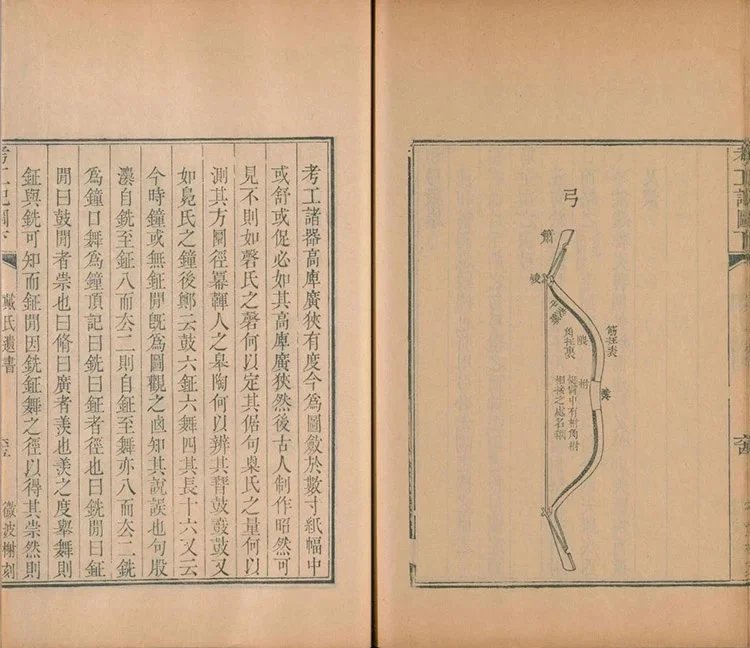 考工記圖下
弓
簫
筋在表
隈
角在裏
柎
挺臂中有柎角柎
相接之處名
考工諸器高庳廣狹有度今爲圖斂於數寸紙幅中
或舒或促必如其高庳廣狹然後古人制作昭然可
見不則如磬氏之磬何以定其倨句㮚氏之量何以
測其方圜徑冪韗人之皋陶何以辨其晉鼓鼖鼓又
如鳧氏之鐘後鄭云鼓六鉦六舞四其長十六又云
今時鐘或無鉦閒旣爲圖觀之𠧟知其說誤也句股
灋自銑至鉦八而去二則自鉦至舞亦八而去二銑
爲鐘口舞爲鐘頂記曰銑曰鉦者徑也曰銑閒曰鉦
閒曰鼓閒者崇也曰脩曰廣者羨也羨之度舉舞則
鉦與銑可知而鉦閒因銑鉦舞之徑以得其崇然則
考工記圖下
戴氏遺書
微波榭刻